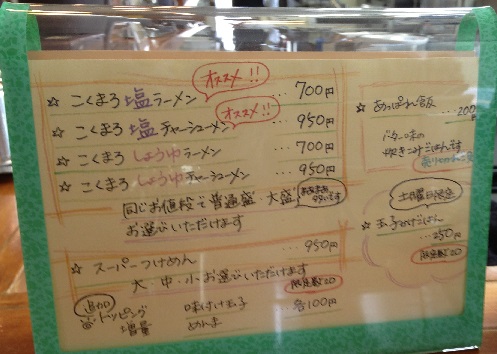 オススメ!!
☆ こくまろ 塩ラーメン ... 700円
オススメ!!
☆ こくまろ 塩チャーシューメン ... 950円
☆ こくまろ しょうゆラーメン ... 700円
☆ こくまろ しょうゆチャーシューメン ... 950円
同じお値段で普通盛・大盛
お選びいただけます
☆ スーパーつけめん ... 950円
大・中・小お選びいただけます
限定数20
追加
トッピング 味付け玉子 ... 各100円
増量 めんま
☆ あっぱれ飯
... 200円
バター味の
炊きこみごはんです
土曜日限定
☆ 玉子かけごはん
... 250円
限定数20